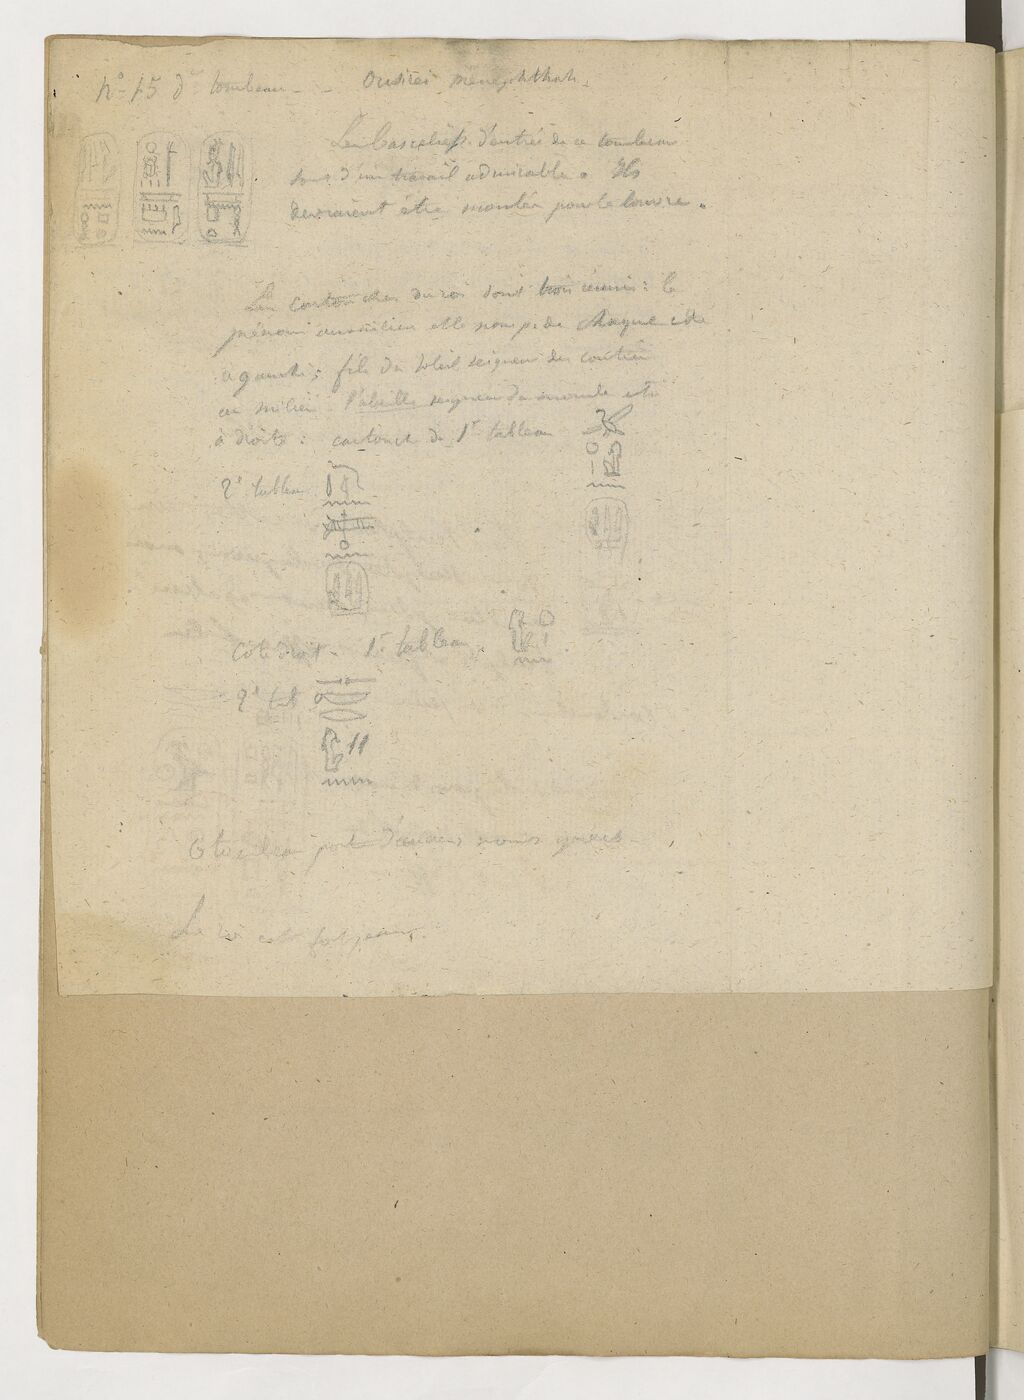 n° 15 de tombeau - - Ousirei menephthah.
Les bas reliefs d'entrée de ce tombeau
sont d'un travail admirable. Ils
devraient être moulés pour le louvre.
Les cartouches du roi sont trois réunis : le
prénom au milieu et le nom p. de chaque côté
a gauche ; fils du soleil seigneur des
au milieu l'abeille seigneur du monde et
à droite : cartouche du 1r tableau
2e tableau
Côté droit - 1r tableau.
2e tab
porte d'anciens noms grecs
Le roi est